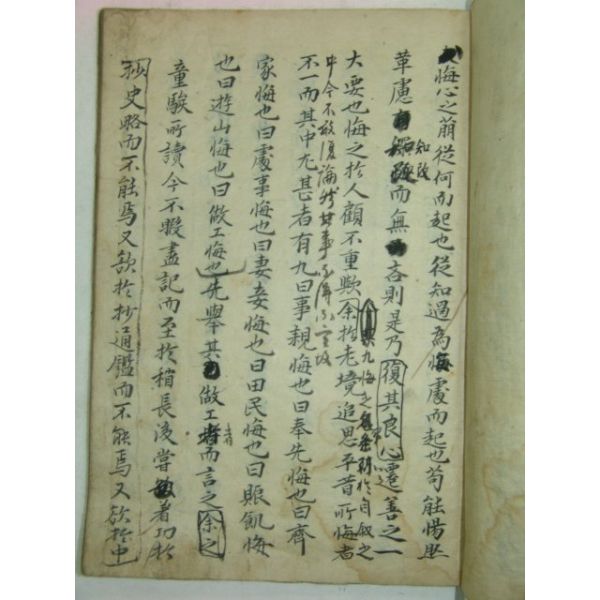 悔心之萠從何而起也從知過爲悔處而起也苟能惕然
革慮知改而無吝則是乃復其良心遷善之一
大要也悔之於人顧不重歟余於老境追思平昔所悔者
九悔之於自叙之
中今不敢復論然其事
不一而其中尤甚者有九曰事親悔也曰奉先悔也曰齊
家悔也曰處事悔也曰妻妾悔也曰田民悔也曰賑飢悔
也曰遊山悔也曰做工悔也先擧其做工者而言之余之
童騃所讀今不暇盡記而至於稍長後嘗着功於
抄史略而不能焉又欲於抄通鑑而不能焉又欲於中